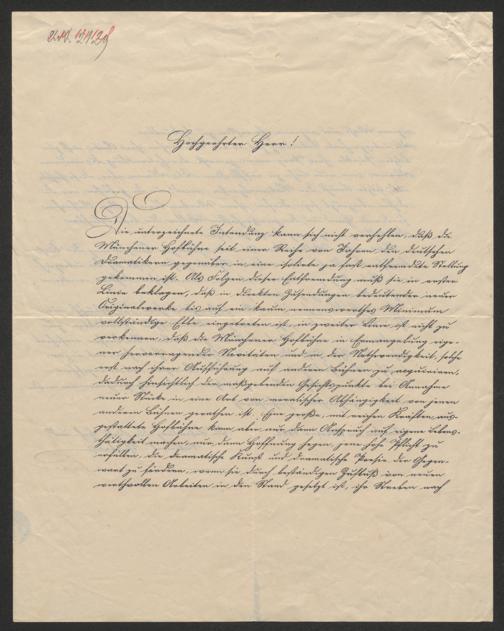 Hochgeehrter Herr!
Die unterzeichnete Intendanz kann sich nicht verhehlen, daß die
Münchener Hofbühne seit einer Reihe von Jahren den deutschen
Dramatikern gegenüber in eine isolirte ja fast entfremdete Stellung
gekommen ist. Als Folgen dieser Entfremdung muß sie in erster
Linie beklagen, daß in direkten Zusendungen bedeutender neuer
Originalwerke bis auf ein kaum nennenswerthes Minimum
vollständige Ebbe eingetreten ist, in zweiter Linie ist nicht zu
verkennen, daß die Münchener Hofbühne in Ermangelung eige-
ner hervorragender Novitäten und in der Nothwendigkeit, solche
erst nach ihrer Aufführung auf anderen Bühnen zu acquiriren,
dadurch hinsichtlich der maßgebenden Gesichtspunkte bei Annahme
neuer Stücke in eine Art von moralischer Abhängigkeit von jenen
anderen Bühnen gerathen ist. Eine große, mit reichen Kräften aus-
gestattete Hofbühne kann aber nur dann Anspruch auf eigene Lebens-
thätigkeit machen, nur dann Hoffnung hegen, jene hohe Pflicht zu
erfüllen, die dramatische Kunst und dramatische Poesie der Gegen-
wart zu fördern, wenn sie durch beständigen Zufluß von neuen
werthvollen Arbeiten in den Stand gesetzt ist, ihr Streben nach